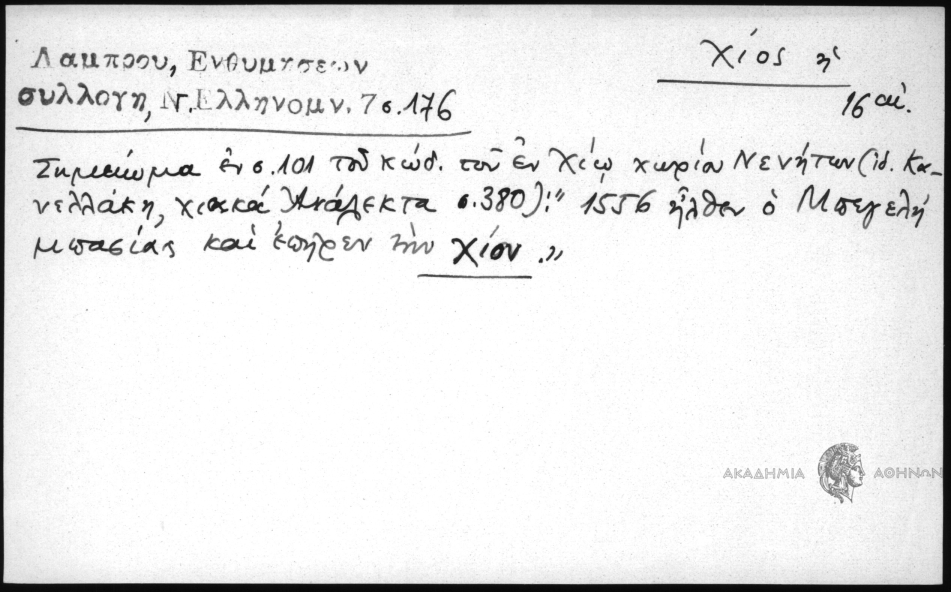 Λαμπρου, Ενθυμησεων
συλλογη, Ν. Ελληνομν. 7 σ. 176
Χίος ἡ
16 αἰ.
Σημείωμα ἐν σ. 101 τοῦ κώδ. τοῦ ἐν Χίῳ χωρίου Νενήτων (ἰδ. Κα-
νελλάκη, χιακά Ἀνάλεκτα σ. 380): "1556 ἦλθεν ὁ Μπεγελή
μπασίας καί ἐπῆρεν τὴν Χίον."
ΑΚΑΔΗΜΙΑ ΑΘΗΝΩΝ